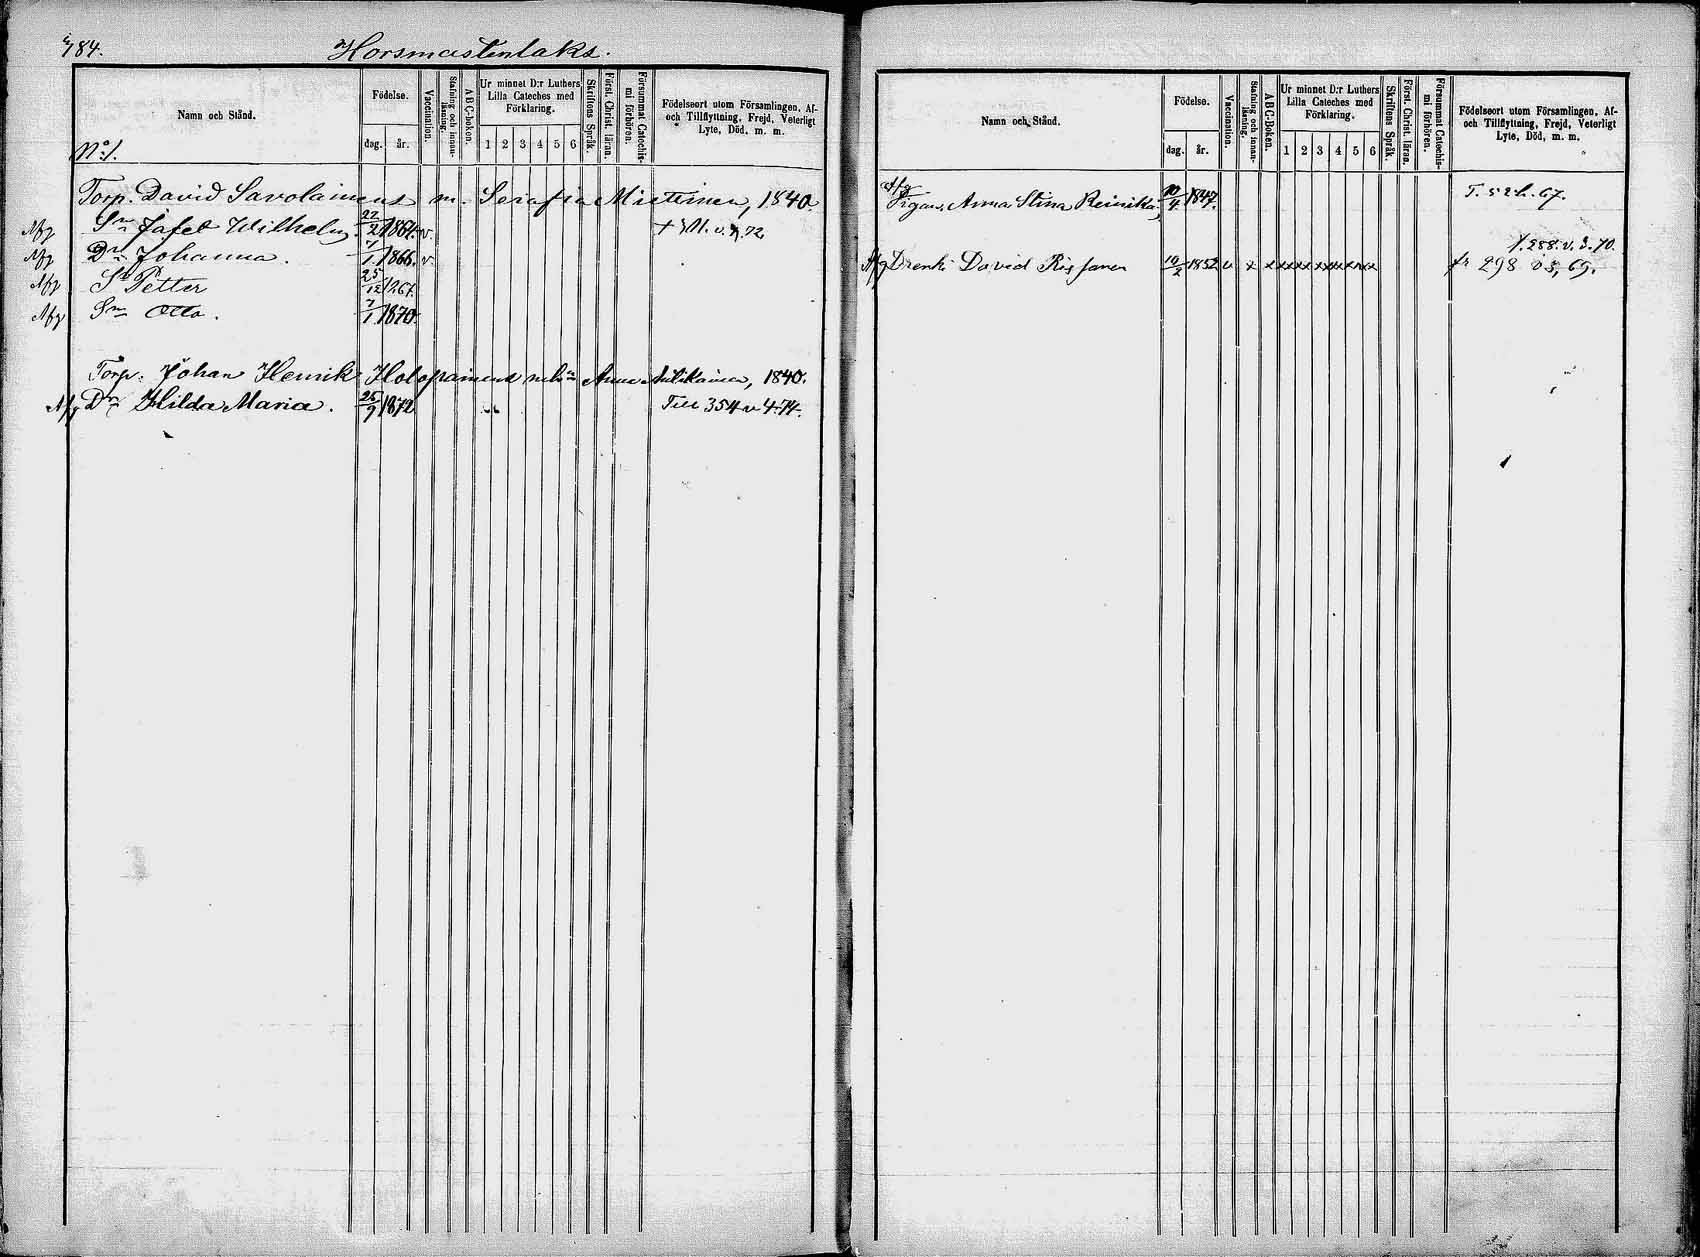 184. Horsmastenlaks.
Namn och Stånd.
Födelse.
dag. år.
Vaccination.
Stafning och innan-läsning.
ABC-boken.
Ur minnet D:r Luthers Lilla Cateches med Förklaring.
1 2 3 4 5 6
Skriftens Språk.
Först. Christ. läran.
Försummat Catechis-mi förhören.
Födelseort utom Församlingen, Af-
och Tillflyttning, Frejd, Veterligt
Lyte, Död, m. m.
No 1.
Torp. David Savolainens m. Serafia Miettinen, 1840.
Afg Sn Jafet Wilhelm. 22/2 1864. v.
Afg Dr Johanna. 7/1 1866. v.
Afg Sn Petter 25/12 1867.
Afg Sn Otto. 7/1 1870
Torp. Johan Henrik Holopainens Anna 1840.
Afg Dr Hilda Maria. 25/9 1872 Till 354 v 4.74.
Namn och Stånd.
Födelse.
dag. år.
Vaccination.
Stafning och innan-läsning.
ABC-Boken.
Ur minnet D:r Luthers Lilla Cateches med Förklaring.
1 2 3 4 5 6
Skriftens Språk.
Först. Christ. läran.
Försummat Catechis-mi förhören.
Födelseort utom Församlingen, Af-
och Tillflyttning, Frejd, Veterligt
Lyte, Död, m. m.
Afg Pigan Anna Stina Reinikka 10/4 1847. T. 52 h. 67.
t. 288. v. 3. 70.
Afg Dreng David Rissanen 10/2 1852 v x x x x x x x x x x x fr 298 v 3, 69.